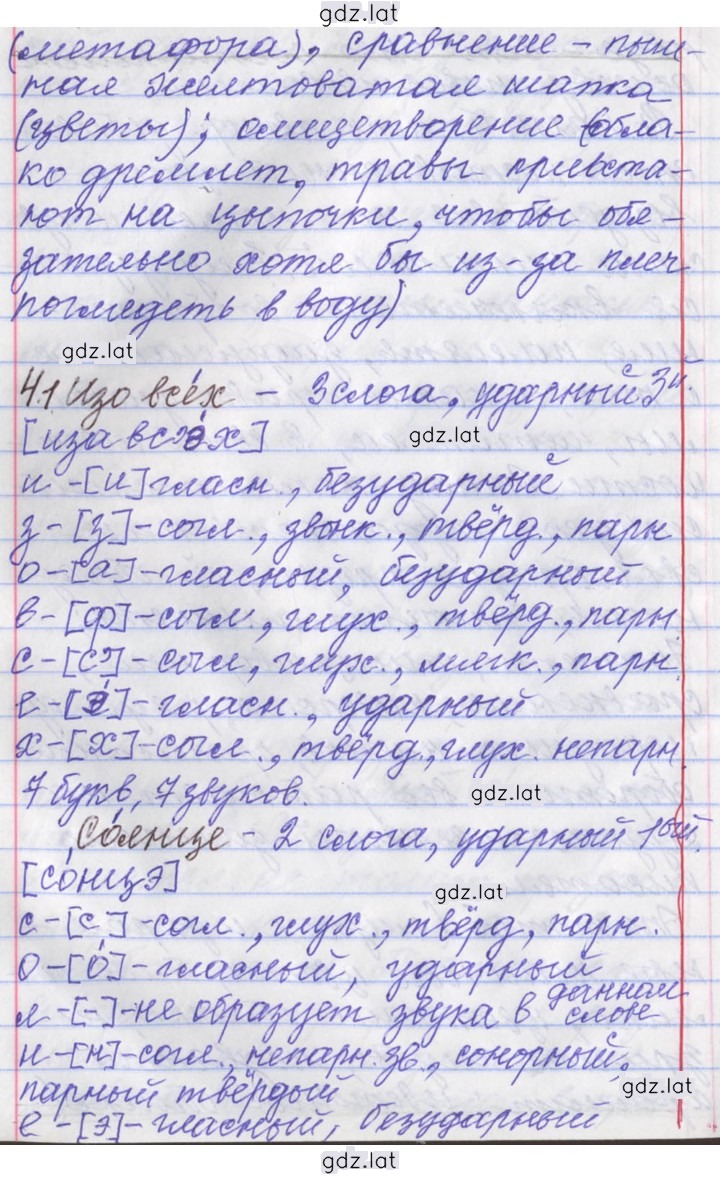 gdz.lat
(метафора), сравнение - пыш-
ная желтоватая шапка
(цветы); олицетворение (обла-
ко дремлет, травы привста-
ют на цыпочки, чтобы обя-
зательно хотя бы из-за плеч
поглядеть в воду)
gdz.lat
41 Изо все́х - 3 слога, ударный 3й.
[иза вс'э́х]
gdz.lat
и - [и] гласн., безударный
з - [з] - согл., звонк., твёрд., парн
о - [а] - гласный, безударный
в - [ф] - согл, глух., твёрд., парн
с - [с'] - согл, глух., мягк., парн.
е - [э́] - гласн., ударный
х - [х] - согл., твёрд., глух. непарн.
7 букв, 7 звуков.
gdz.lat
Со́лнце - 2 слога, ударный 1ый.
[со́нцэ]
gdz.lat
с - [с] - согл., глух., твёрд, парн.
о - [о́] - гласный, ударный
л - [-] - не образует звука в данном
слове
н - [н] - согл., непарн. зв., сонорный,
парный твёрдый
gdz.lat
е - [э] - гласный, безударный
gdz.lat